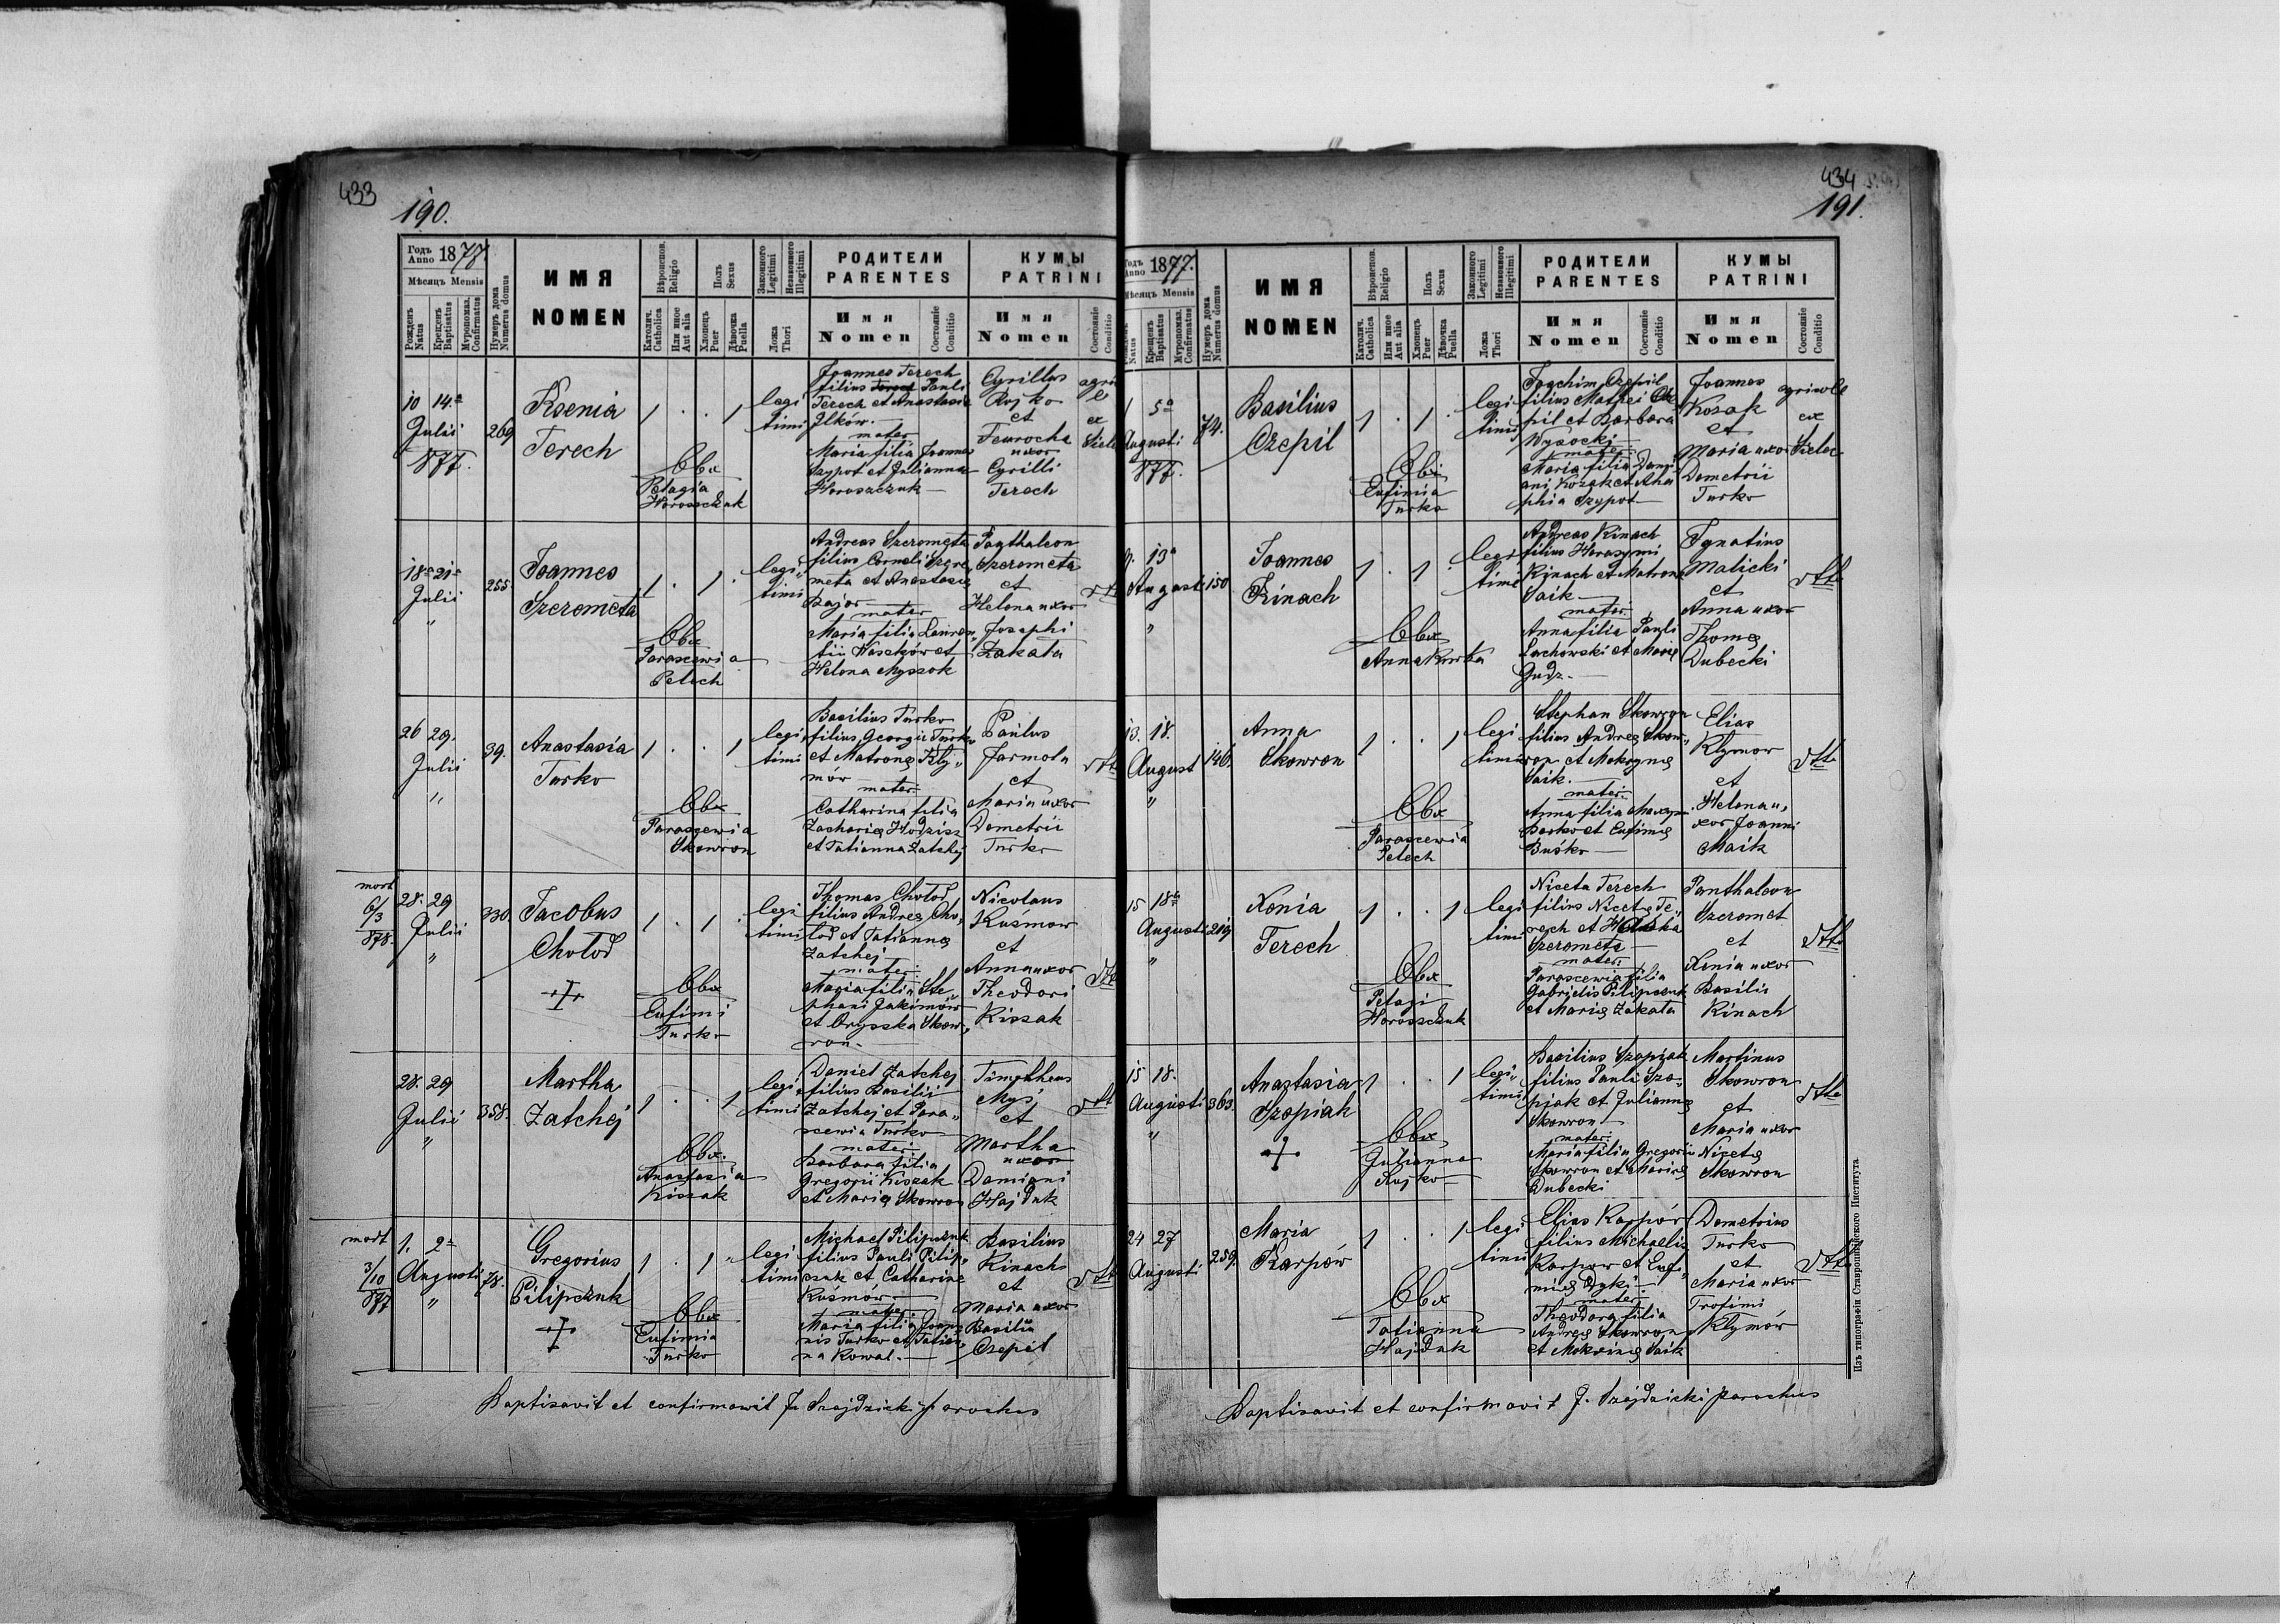 433
190.
Годъ Anno 1877.
Мѣсяцъ Mensis
Рожденъ Natus
Крещенъ Baptisatus
Мѵропомаз. Confirmatus
Нумеръ дома Numerus domus
ИМЯ
NOMEN
Вѣроисповѣд. Religio
Католич. Catholica
Или иное Aut alia
Полъ Sexus
Хлопецъ Puer
Дѣвочка Puella
Законного Legitimi
Незаконного Illegitimi
Ложа Thori
РОДИТЕЛИ
PARENTES
Имя
Nomen
Состояніе Conditio
КУМЫ
PATRINI
Имя
Nomen
Состояніе Conditio
10 14.a
Julii
877.
269
Ksenia
Terech
1 . . 1
Obx
Pelagia
Horoszczuk
legi
timi
Joannes Terech
filius Pauli
Terech et Anastasia
Ilków.
mater
Maria filia Joannes
Szypot et Julianna
Horoszczuk
Cyrillus
Rojko
et
Feurocha
uxor
Cyrilli
Terech
agri
ex
18a 21a
Julii
"
255
Joannes
Szerometa
1 . 1 .
Obx
Parascewia
Pelech
legi
timi
Andreas Szerometa
filius Corneli Szero
meta et Anastasia
Bajor
mater
Maria filia Lauren
tii Waszków et
Helena Myszok
Panthaleon
Szerometa
et
Helena uxor
Josephi
Zakala
dtto
26 29.
Julii
"
39.
Anastasia
Turko
1 . . 1
Obx
Parascewia
Skowron
legi
timi
Basilius Turko
filius Georgii Turko
et Matronę Kly„
mór
mater
Catharina filia
Zacharię Hodzisz
et Tatianna Zatchej
Paulus
Jarmola
et
Maria uxor
Demetrii
Turko
dtto
mort
6/3
878.
28. 29
Julii
"
330.
Jacobus
Chołod
1 . 1 .
Obx
Eufimi
Turko
legi
timi
Thomas Chołod
filius Andreę Cho„
łod et Tatiannę
Zatchej
mater
Maria filia Ste„
phani Jakimów
et Orysska Skow„
ron.
Nicolaus
Kuśmow
et
Anna uxor
Theodori
Kiszak
dtto
28. 29
Julii
"
358.
Martha
Zatchej
1 . . 1
Obx.
Anastasia
Kiszak
legi
timi
Daniel Zatchej
filius Basilii
Zatchej et Para„
scewia Turko
mater
Barbara filia
Gregorii Kiszak
et Marię Skowron
Timotheus
Myś
et
Martha
uxor
Damiani
Hajduk
dtto
mort
3/10
877
1. 2a
Augusti
"
78.
Gregorius
Pilipczuk
1 . 1 "
Obx
Eufimia
Turko
legi
timi
Michael Pilipczuk
filius Pauli Pilip„
czuk et Catharinę
Kuśmów
mater
Maria filia Joan
nis Turko et Tatia
na Kowal.
Basilius
Kinach
et
Maria uxor
Basilii
Czepil
dtto
Baptisavit et confirmawit J. Szajdzicki parochus
434
191.
Годъ Anno 1877.
Мѣсяцъ Mensis
Natus
Крещенъ Baptisatus
Мѵропомаз. Confirmatus
Нумеръ дома Numerus domus
ИМЯ
NOMEN
Вѣроисповѣд. Religio
Католич. Catholica
Или иное Aut alia
Полъ Sexus
Хлопецъ Puer
Дѣвочка Puella
Законного Legitimi
Незаконного Illegitimi
Ложа Thori
РОДИТЕЛИ
PARENTES
Имя
Nomen
Состояніе Conditio
КУМЫ
PATRINI
Имя
Nomen
Состояніе Conditio
1 5a
Augusti
877.
74.
Basilius
Czepil
1 . 1 .
Obx
Eufimiia
Turko
legi
timi
Joachim Czepil
filius Mathei Cze
pil et Barbara
Wysocki
mater
Maria filia Dami
ani Kozak et Aha
phia Szypot
Joannes
Kozak
et
Maria uxor
Demetrii
Turko
agricolę
ex
Sielec
9. 13a
Augusti
"
150
Joannes
Kinach
1 . 1 .
Obx
Anna Kurka
legi
timi
Andreas Kinach
filius Harasymi
Kinach et Matrona
Saik
mater
Anna filia Pauli
Lachowski et Marię
Gudz.
Ignatius
Malicki
et
Anna uxor
Thomę
Dubecki
dtto
13. 18.
August
"
146.
Anna
Skowron
1 . . 1
Obx
Parascewia
Pelech
legi
timi
Stephan Skowron
filius Andreę Skow„
ron et Mokrynę
Saik.
mater
Anna filia Maxym
Borko et Eufimię
Buśko
Elias
Klymow
et
Helena u„
xor Joanni
Maik
dtto
15 18a
Augusti
"
219
Xenia
Terech
1 . . 1
Obx
Pelagi
Horoszczuk
legi
timi
Niceta Terech
filius Nicetę Te„
rech et
Szerometa
mater
Parascewia filia
Gabrielis Pilipczuk
et Marię Zakala
Panthaleon
Szeromet
et
Xenia uxor
Basilii
Kinach
dtto
15 18.
Augusti
"
363.
Anastasia
Szopiak
1 . . 1
Obx
Julianna
Rojko
legi
timi
Basilius Szopiak
filius Pauli Szo„
piak et Juliannę
Skowron
mater
Maria filia Gregorii
Skowron et Marię
Dubecki
Martinus
Skowron
et
Maria uxor
Nicetę
Skowron
dtto
24 27
Augusti
"
259.
Maria
Karpów
1 . . 1
Obx
Tatianna
Hajduk
legi
timi
Elias Karpów
filius Michaelis
Karpow et Eufi„
mię Dyki
mater
Theodora filia
Andreę Skowron
et Mokrinę Saik
Demetrius
Turko
et
Maria uxor
Trofimi
Klymór
dtto
Baptisavit et confirmavit J. Szajdzicki parochus
Изъ типографіи Ставропигійского Института